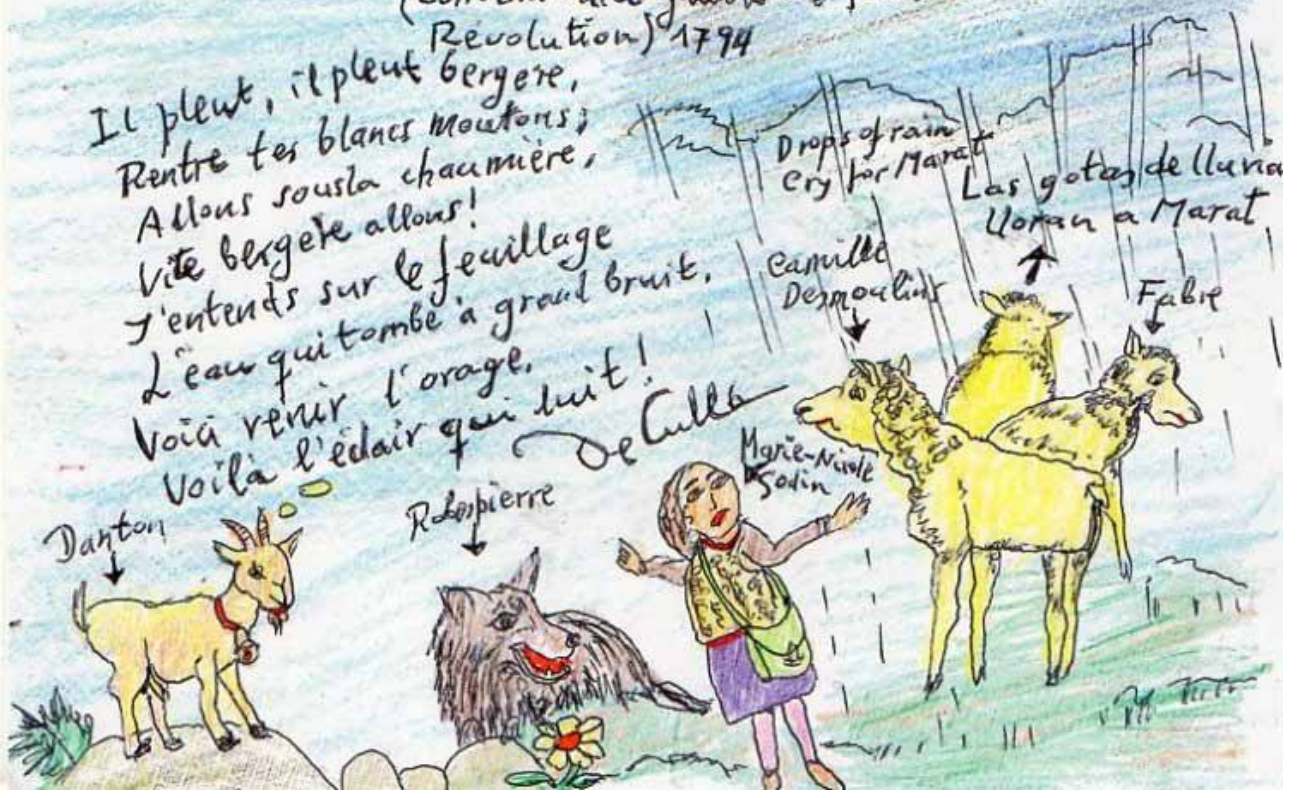 Révolution) 1794
Il pleut, il pleut bergère,
Rentre tes blancs moutons;
Allons sous la chaumière,
Vite bergère allons!
J'entends sur le feuillage
L'eau qui tombe à grand bruit.
Voici venir l'orage,
Voilà l'éclair qui luit!
De Culla
Drops of rain
Cry for Marat
Las gotas de lluvia
lloran a Marat
Camille
Desmoulins
Fabre
Marie-Nicole
Godin
Robespierre
Danton